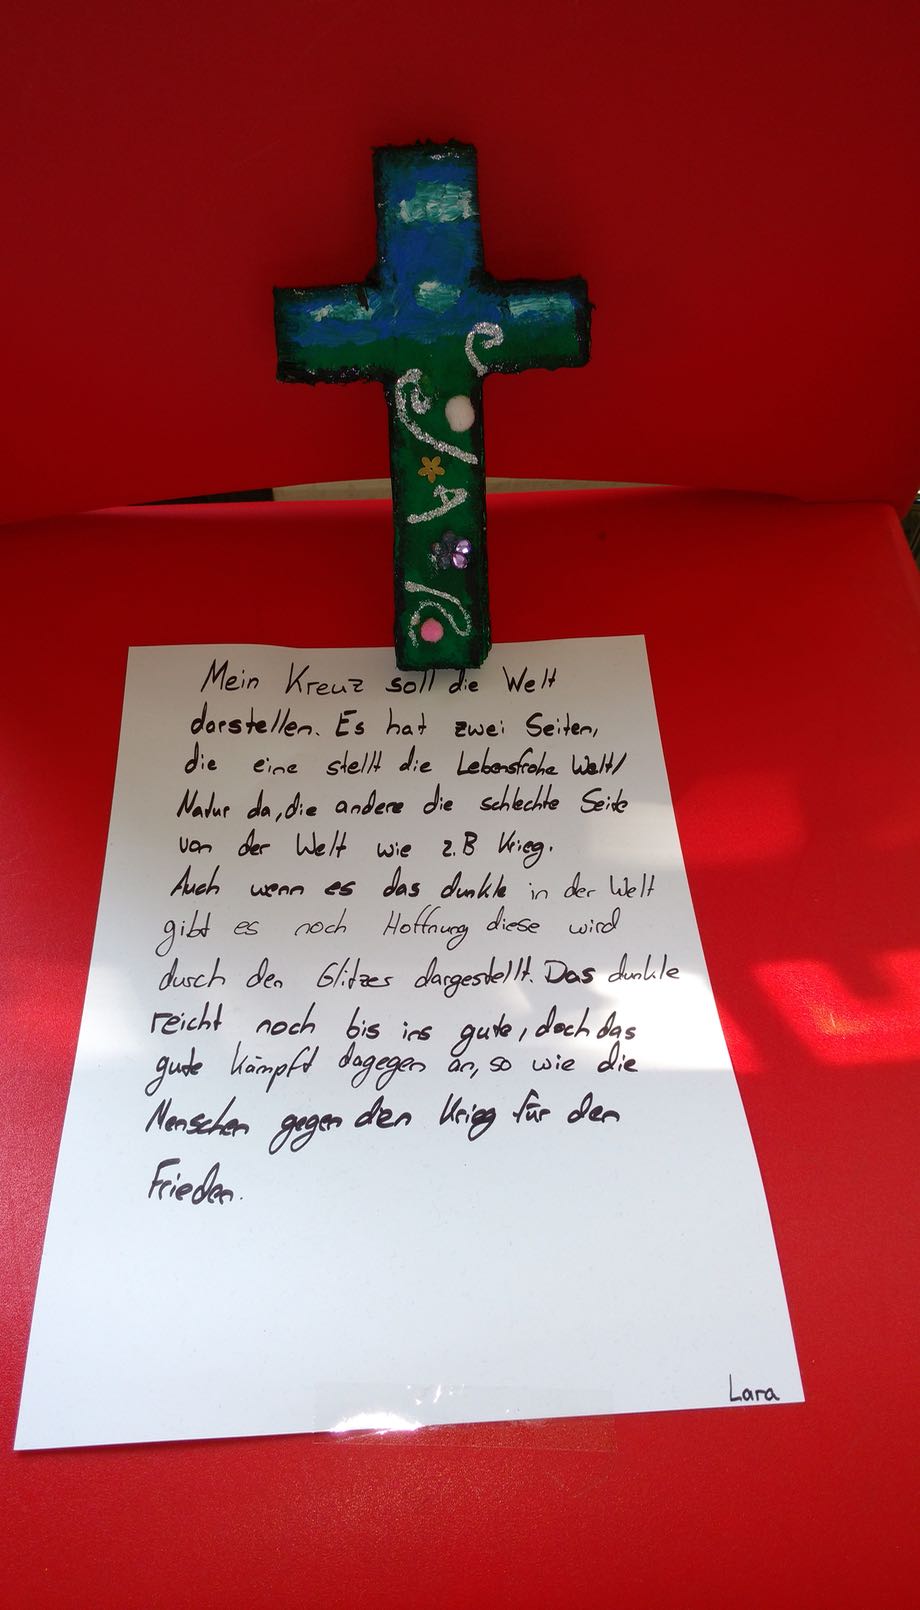 Mein Kreuz soll die Welt
darstellen. Es hat zwei Seiten,
die eine stellt die Lebensfrohe Welt/
Natur da, die andere die schlechte Seite
von der Welt wie z.B Krieg.
Auch wenn es das dunkle in der Welt
gibt es noch Hoffnung diese wird
durch den Glitzer dargestellt. Das dunkle
reicht noch bis ins gute, doch das
gute kämpft dagegen an, so wie die
Menschen gegen den Krieg für den
Frieden.
Lara